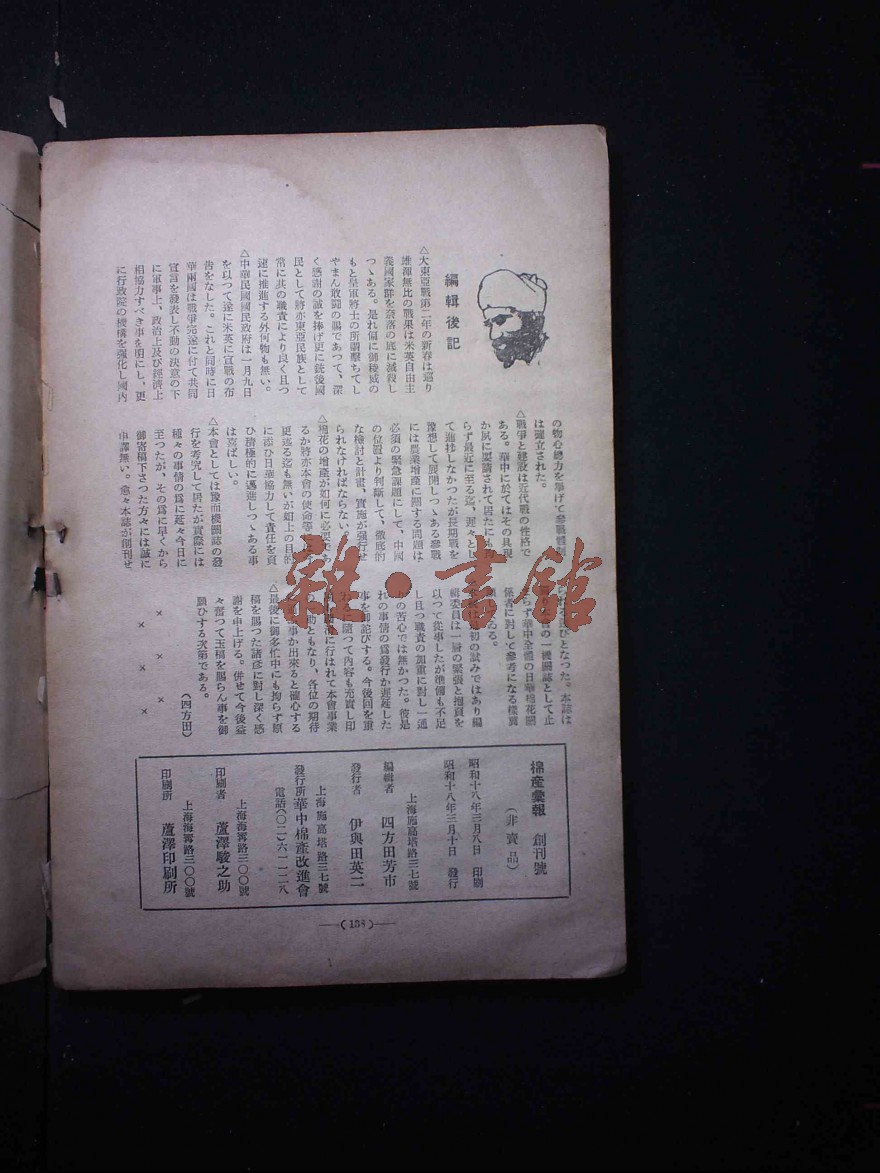 編輯後記
△大東亞戰第二年の新春は巡り
雄渾無比の戰果は米英自由主
義國家群を奈落の底に滅殺し
つゝある。是れ偏に御稜威の
もと皇軍將士の所謂撃ちてし
やまん敢闘の賜であつて、深
く感謝の誠を捧げ更に銃後國
民として將亦東亞民族として
常に其の職責により良く且つ
速に推進する外何物も無い。
△中華民國國民政府は一月九日
を以つて遂に米英に宣戰の布
告をなした。これと同時に日
華兩國は戰爭完遂に付て共同
宣言を發表し不動の決意の下
に軍事上、政治上及び經濟上
相協力すべき事を明にし、更
に行政院の機構を强化し國內
の物心總力を擧げて參戰體制
は確立された。
△戰爭と建設は近代戰の性格で
ある。華中に於てはその具現
が夙に要請されて居たにも
らず最近に至る迄、遲々とし
て進抄しなかつたが長期戰を
豫想して展開しつゝある參戰
には農業增產に關する問題は
必須の緊急課題にして、中國
の位置より判斷して、徹底的
な檢討と計畫、實施が强行せ
られなければならない。
△棉花の增產が如何に必要であ
るか將亦本會の使命等に
更迄る迄も無いが如上の目的
に添ひ日華協力して責任を負
ひ積極的に邁進しつゝある事
は喜ばしい。
△本會としては豫而機關誌の發
行を考究して居たが實際には
種々の事情の爲に延々今日に
至つたが、その爲に早くから
御寄稿下さつた方々には誠に
申譯無い。愈々本誌が創刊せ
られる運びとなつた。本誌は
會の一機關誌として止
らず華中全體の日華棉花關
係者に對して參考になる樣
ゐる。
初の試みではあり編
輯委員は一層の緊張と抱負を
以つて從事したが準備も不足
し且つ職責の加重に對し一通
りの苦心では無かつた。彼是
れの事情の爲發行が遲延した
事を御詫びする。今後回を重
隨つて內容も充實し印
に行はれて本會事業
助ともなり、各位の期待
事が出來ると確心する
△最後に御多忙中にも拘らず原
稿を賜つた諸彦に對し深く感
謝を申上げる。併せて今後益
々奮つて玉稿を賜らん事を御
願ひする次第である。
(四方田)
× × × ×
× × ×
雜·書館
棉産彙報 創刊號
(非賣品)
昭和十八年三月八日 印刷
昭和十八年三月十日 發行
上海施高塔路三七號
編輯者 四方田芳市
發行者 伊與田英二
上海施高塔路三七號
發行所 華中棉產改進會
電話(〇二)六一一二八
上海海寧路三〇〇號
印刷者 蘆澤駿之助
上海海寧路三〇〇號
印刷所 蘆澤印刷所
—(138)—